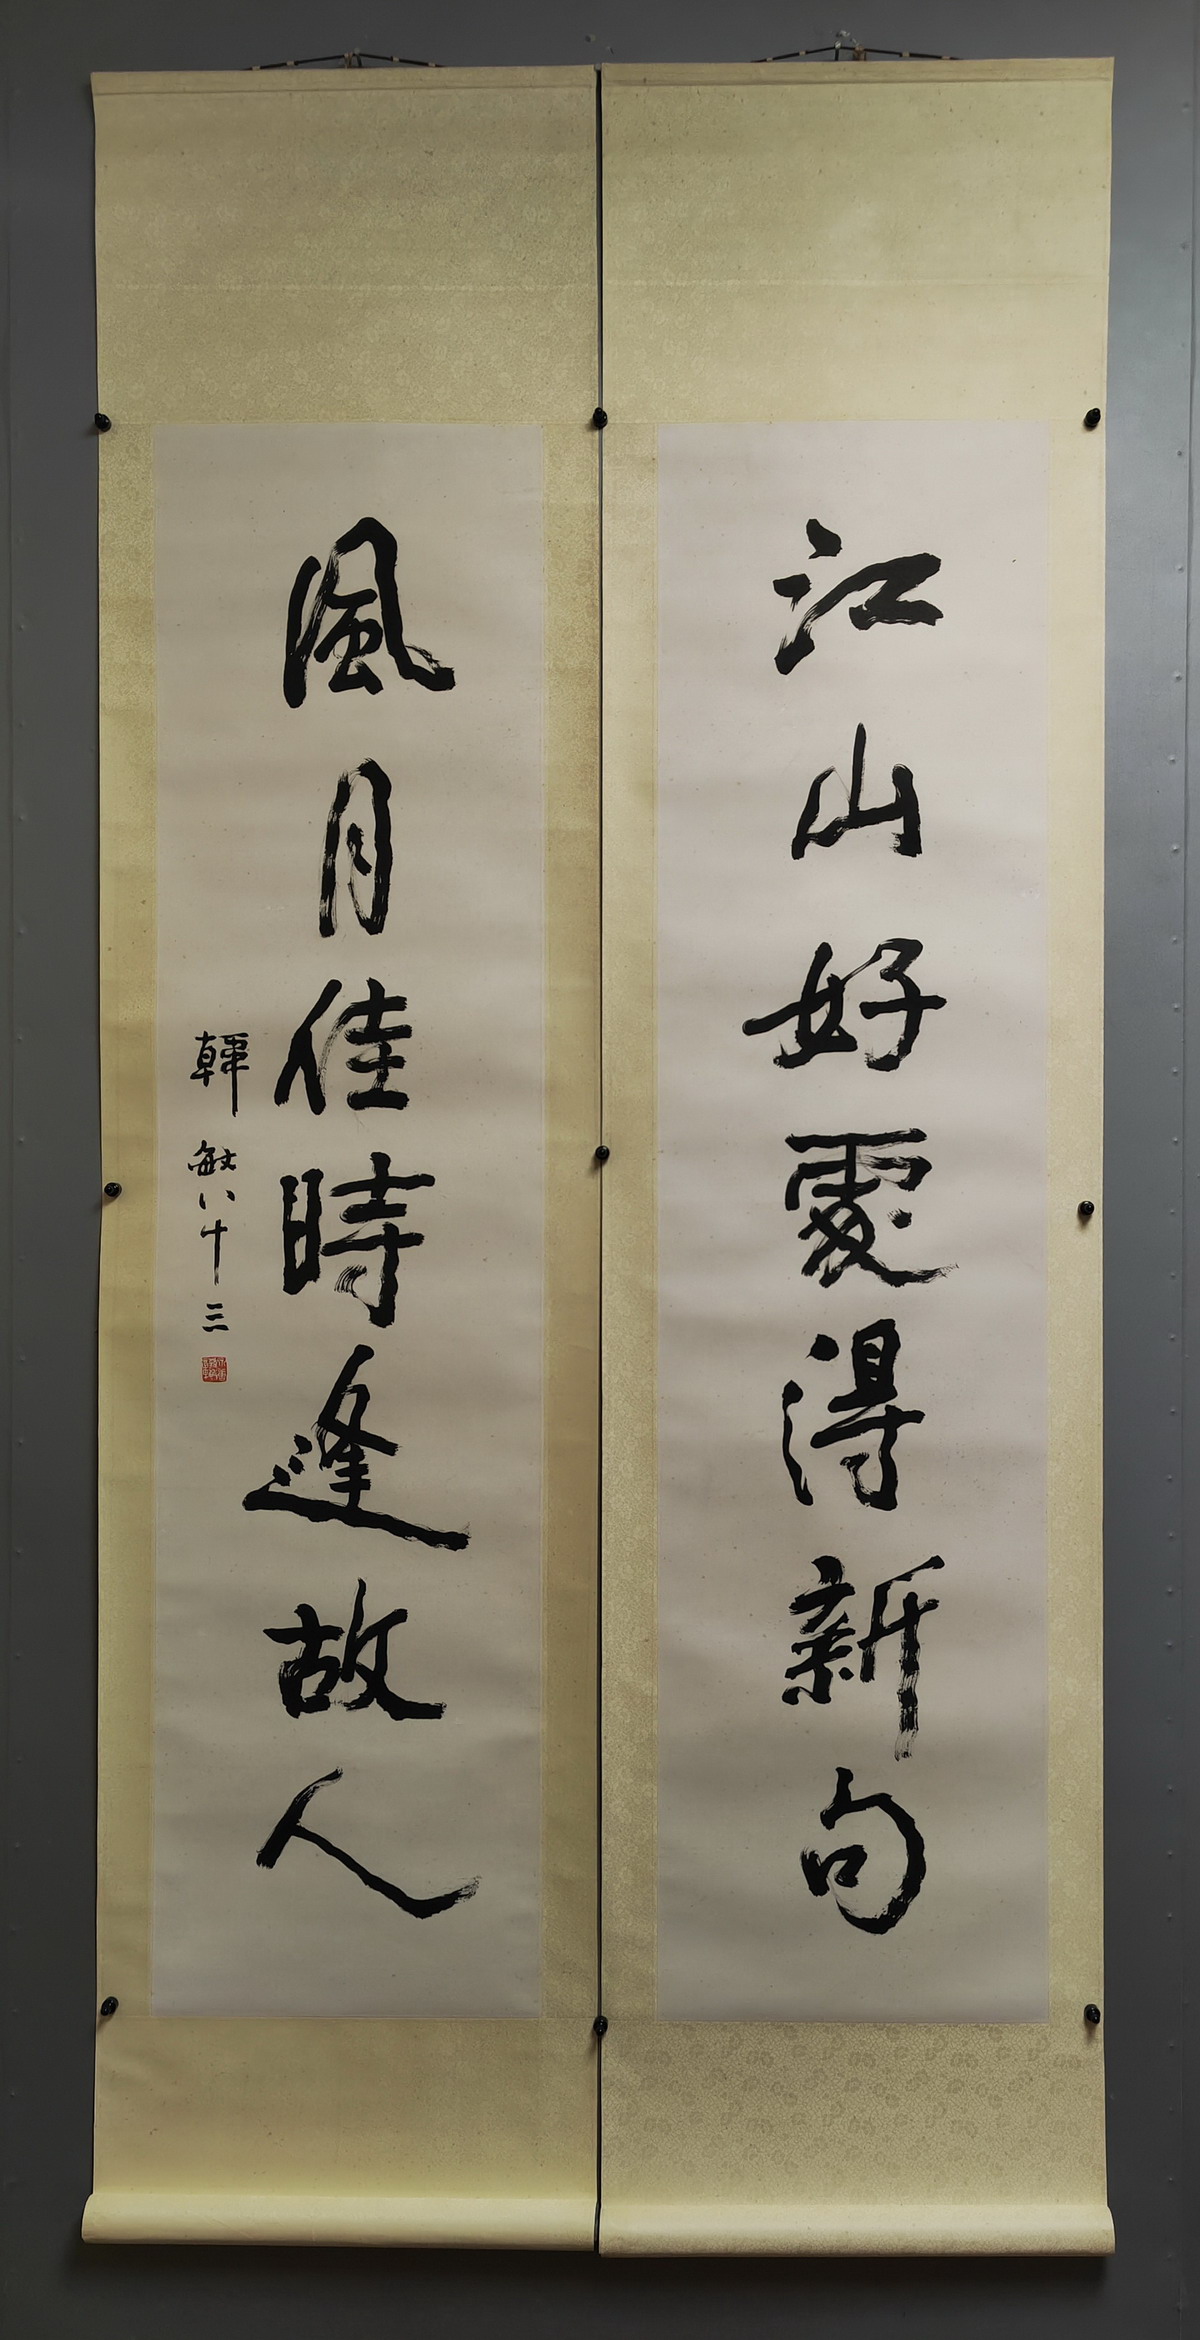 江山好處得新句
風月佳時逢故人
韓敏八十三